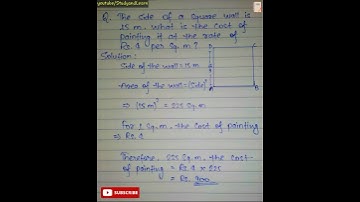 youtube/StudyandLearn
Q. The side of a square wall is
15 m. What is the cost of
painting it at the rate of
Rs. 4 per Sq. m?
Solution:
Side of the wall = 15 m
Area of the wall = (Side)²
⇒ (15 m)² = 225 Sq. m
For 1 Sq. m. the cost of painting
⇒ Rs. 4
Therefore, 225 Sq. m. the cost
of painting = Rs. 4 x 225
= Rs. 900
A B
SUBSCRIBE